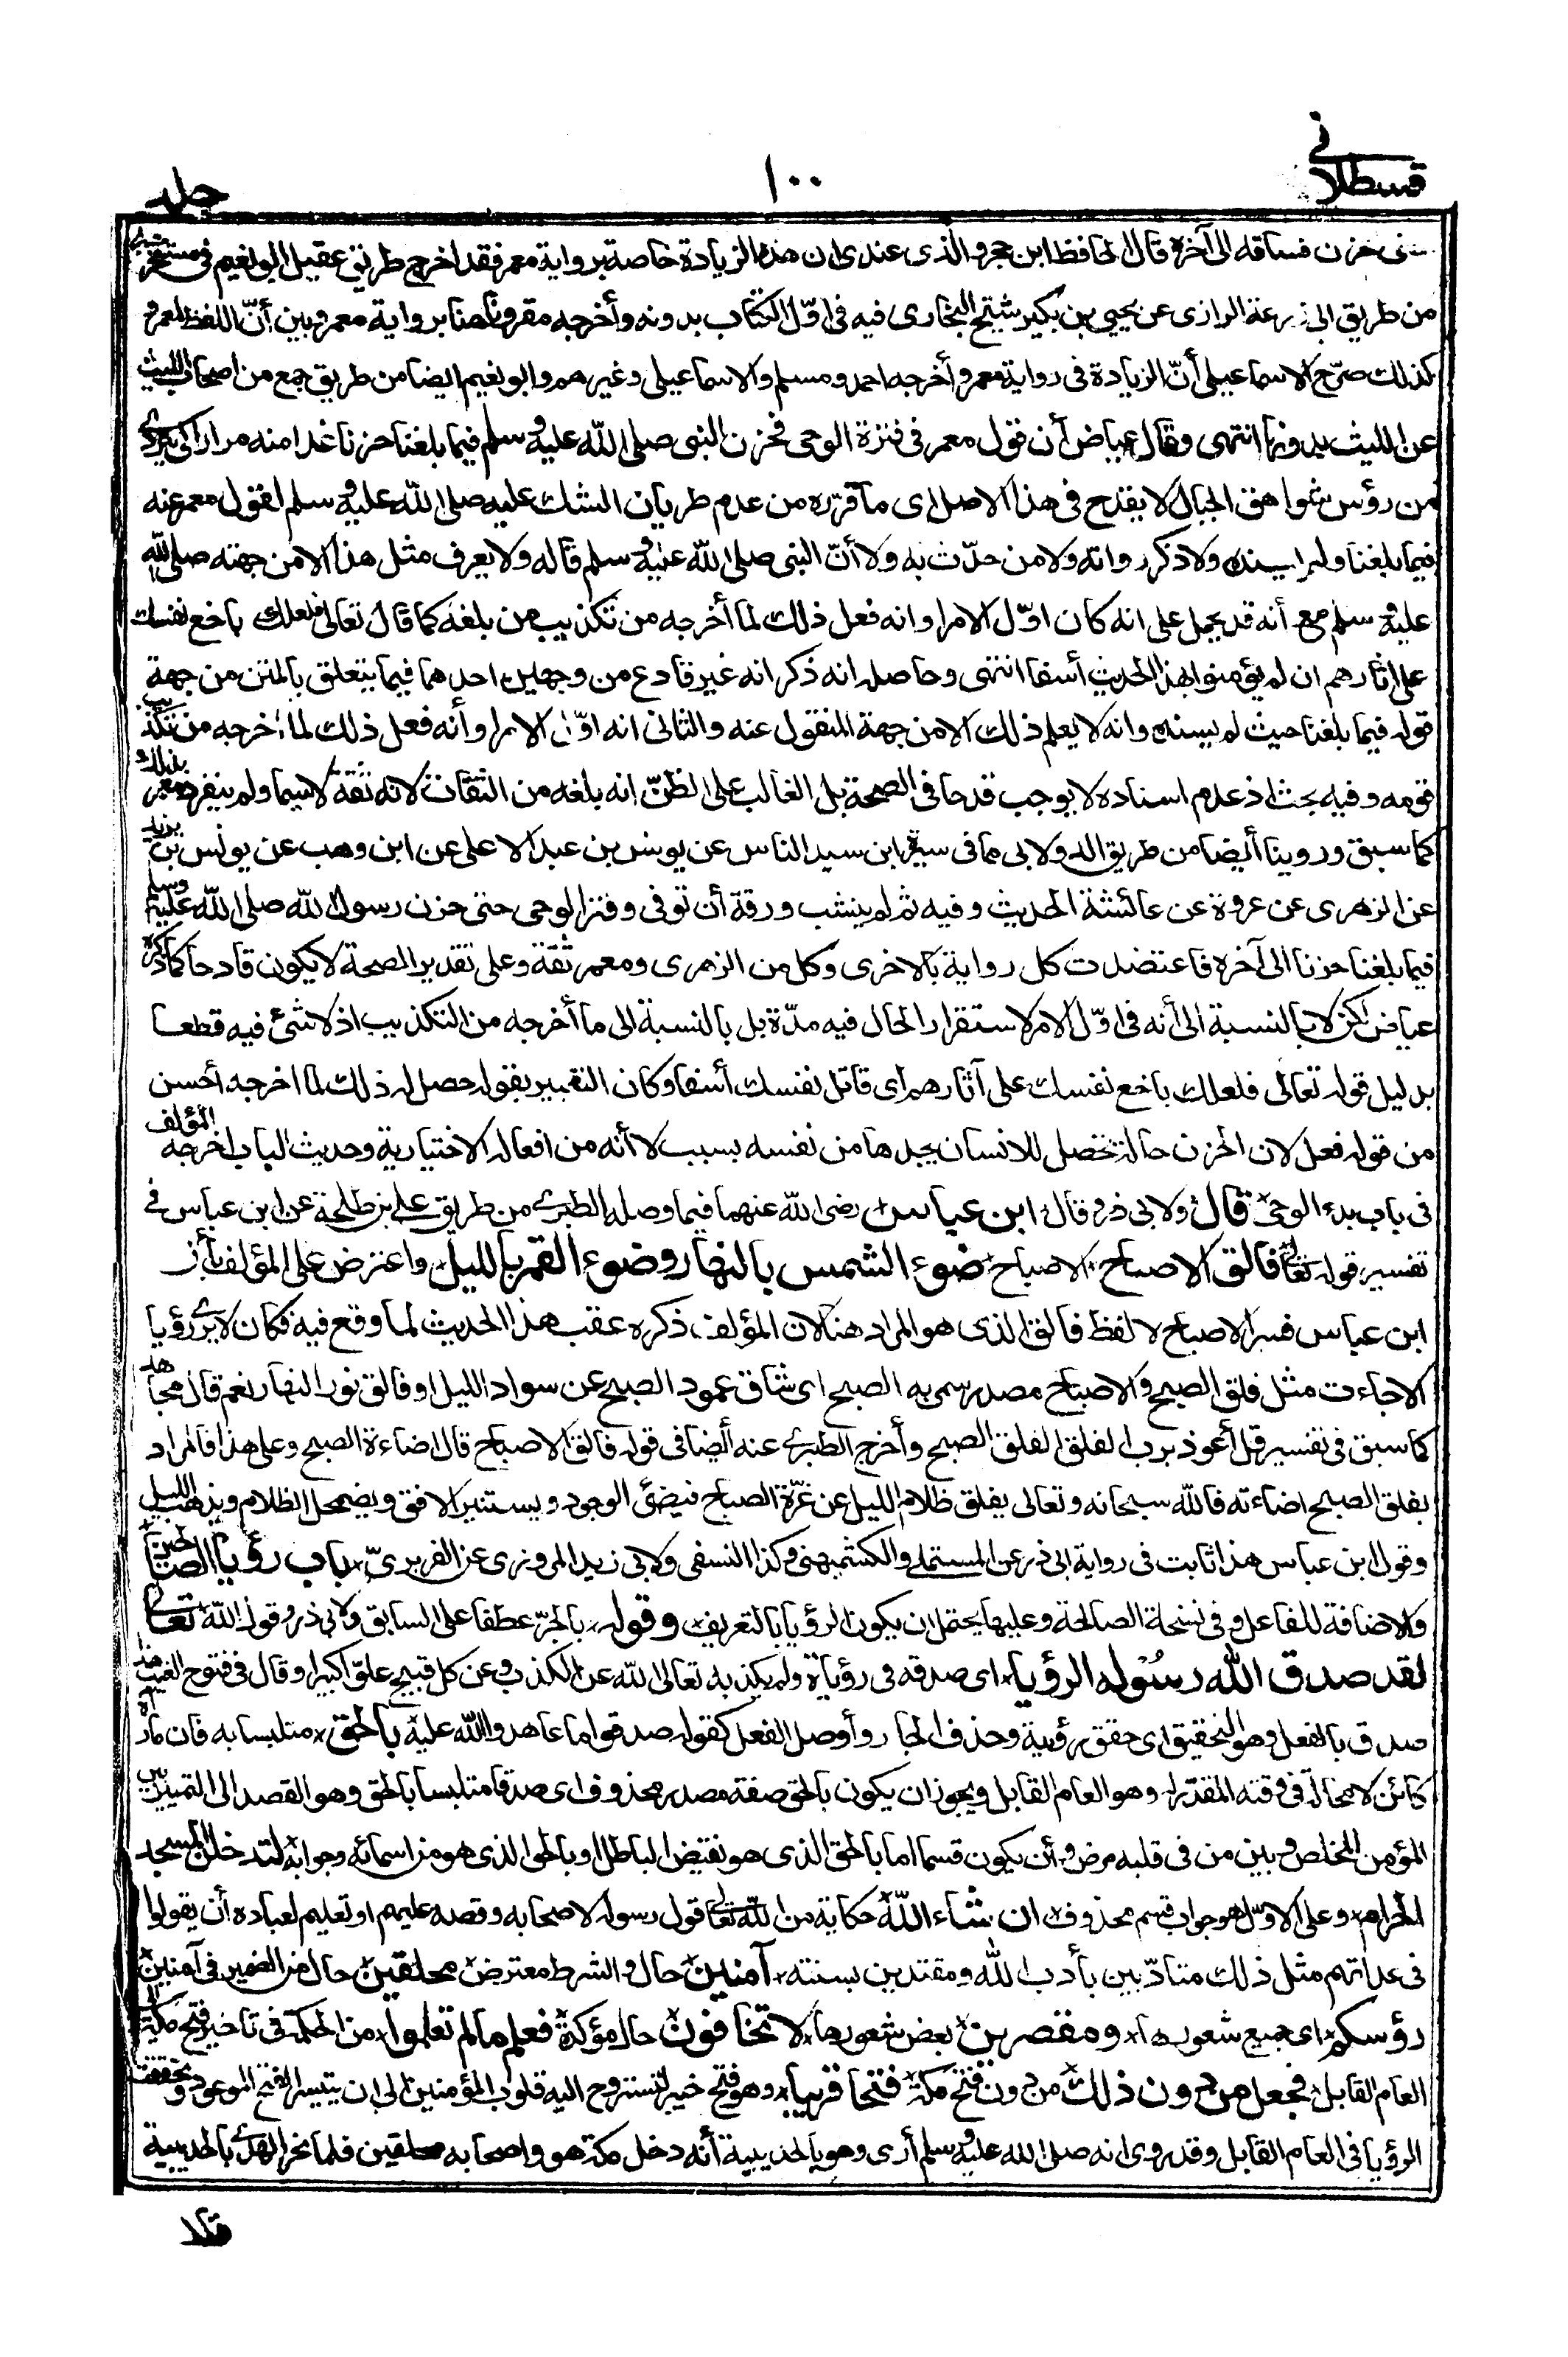 قسطلانى
١٠٠
جلد
حتى حزن فساقه الى آخره قال الحافظ ابن حجر والذى عندى ان هذه الزيادة خاصة برواية معمر فقد اخرج طريق عقيل ابو نعيم فى مستخرجه
من طريق ابى زرعة الرازى عن يحيى بن بكير شيخ البخارى فيه فى اوّل الكتاب بدونه وأخرجه مقرونا هنا برواية معمر وبين أنّ اللفظ لمعمر و
كذلك صرّح الاسماعيلى أنّ الزيادة فى رواية معمر وأخرجه احمد ومسلم والاسماعيلى وغيرهم وابو نعيم ايضا من طريق جمع من اصحاب الليث
عن الليث بدونها انتهى وقال عياض أن قول معمر فى فترة الوحى فحزن النبى صلى الله عليه وسلم فيما بلغنا حزنا غدا منه مرارا كى يتردى
من رؤس شواهق الجبال لا يقدح فى هذا الاصل اى ما قرّره من عدم طريان الشك عليه صلى الله عليه وسلم لقول معمر عنه
فيما بلغنا ولم يسنده ولا ذكر رواته ولا من حدّث به ولا أنّ النبى صلى الله عليه وسلم قاله ولا يعرف مثل هذا الا من جهته صلى الله
عليه وسلم مع أنه قد يحمل على انه كان اوّل الامر او انه فعل ذلك لما أخرجه من تكذيب من بلغه كما قال تعالى فلعلك باخع نفسك
على اثارهم ان لم يؤمنوا بهذا الحديث أسفا انتهى وحاصله انه ذكر انه غير قادح من وجهين احدهما فيما يتعلق بالمتن من جهة
قوله فيما بلغنا حيث لم يسنده وانه لا يعلم ذلك الا من جهة المنقول عنه والثانى انه اوّل الامر او أنه فعل ذلك لما أخرجه من تكذيب
قومه وفيه بحث اذ عدم اسناده لا يوجب قدحا فى الصحة بل الغالب على الظنّ انه بلغه من الثقات لانه ثقة لا سيما ولم ينفرد معمر بذلك و
كما سبق وروينا أيضا من طريق الدولابى مما فى سيرة ابن سيد الناس عن يونس بن عبد الاعلى عن ابن وهب عن يونس بن يزيد
عن الزهرى عن عروة عن عائشة الحديث وفيه ثم لم ينشب ورقة أن توفى وفتر الوحى حتى حزن رسول الله صلى الله عليه وسلم
فيما بلغنا حزنا الى آخره فاعتضدت كل رواية بالاخرى وكل من الزهرى ومعمر ثقة وعلى تقدير الصحة لا يكون قادحا كما ذكره
عياض لكن لا بالنسبة الى أنه فى اوّل الامر لاستقرار الحال فيه مدّة بل بالنسبة الى ما أخرجه من التكذيب اذ لا شئ فيه قطعا
بدليل قوله تعالى فلعلك باخع نفسك على آثارهم اى قاتل نفسك أسفا وكان التعبير بقوله حصل له ذلك لما اخرجه أحسن
من قوله فعل لان الحزن حالة تحصل للانسان يجدها من نفسه بسبب لا أنه من افعاله الاختيارية وحديث الباب اخرجه المؤلف
فى باب بدء الوحى قال ولابى ذر وقال ابن عباس رضى الله عنهما فيما وصله الطبرى من طريق على بن طلحة عن ابن عباس فى
تفسير قوله تعالى فالق الاصباح الاصباح ضوء الشمس بالنهار وضوء القمر بالليل واعترض على المؤلف بأن
ابن عباس فسر الاصباح لا لفظ فالق الذى هو المراد هنا لان المؤلف ذكره عقب هذا الحديث لما وقع فيه فكان لا يرى رؤيا
الا جاءت مثل فلق الصبح والاصباح مصدر سمى به الصبح اى شاق عمود الصبح عن سواد الليل او فالق نور النهار نعم قال مجاهد
كما سبق فى تفسير قل أعوذ برب الفلق الفلق الصبح وأخرج الطبرى عنه أيضا فى قوله فالق الاصباح قال اضاءة الصبح وعلى هذا فالمراد
بفلق الصبح اضاءته فالله سبحانه وتعالى يفلق ظلام الليل عن غرّة الصباح فيضئ الوجود ويستنير الافق ويضمحل الظلام ويذهب الليل
وقول ابن عباس هذا ثابت فى رواية ابى ذر عن المستملى والكشميهنى وكذا النسفى ولابى زيد المروزى عن الفربرىّ باب رؤيا الصالحين
والاضافة للفاعل وفى نسخة الصالحة وعليها يحتمل ان يكون الرؤيا بالتعريف وقوله بالجرّ عطفا على السابق ولابى ذر وقول الله تعالى
لقد صدق الله رسوله الرؤيا اى صدقه فى رؤياه ولم يكذبه تعالى الله عن الكذب وعن كل قبيح علوّا كبيرا وقال فى فتوح الغيب هذا
صدق بالفعل وهو التحقيق اى حقق رؤيته وحذف الجار وأوصل الفعل كقوله صدقوا ما عاهدوا الله عليه بالحق متلبسا به فان ما رآه
كائن لا محالة فى وقته المقدّر له وهو العام القابل ويجوز ان يكون بالحق صفة مصدر محذوف اى صدقا متلبسا بالحق وهو القصد الى التمييز بين
المؤمن المخلص وبين من فى قلبه مرض وأن يكون قسما اما بالحق الذى هو نقيض الباطل او بالحق الذى هو من اسمائه وجوابه لتدخلن المسجد
الحرام وعلى الاوّل هو جواب قسم محذوف ان شاء الله حكاية من الله تعالى قول رسوله لاصحابه وقصه عليهم او تعليم لعباده أن يقولوا
فى عداتهم مثل ذلك متأدّبين بأدب الله ومقتدين بسنته آمنين حال والشرط معترض محلقين حال من الضمير فى آمنين
رؤسكم اى جميع شعورها ومقصرين بعض شعورها لا تخافون حال مؤكدة فعلم ما لم تعلموا من الحكمة فى تاخير فتح مكة الى
العام القابل فجعل من دون ذلك من دون فتح مكة فتحا قريبا وهو فتح خيبر لتستروح اليه قلوب المؤمنين الى ان يتيسر الفتح الموعود وتحققت
الرؤيا فى العام القابل وقد روى انه صلى الله عليه وسلم أرى وهو بالحديبية أنه دخل مكة هو واصحابه محلقين فلما نحر الهدى بالحديبية